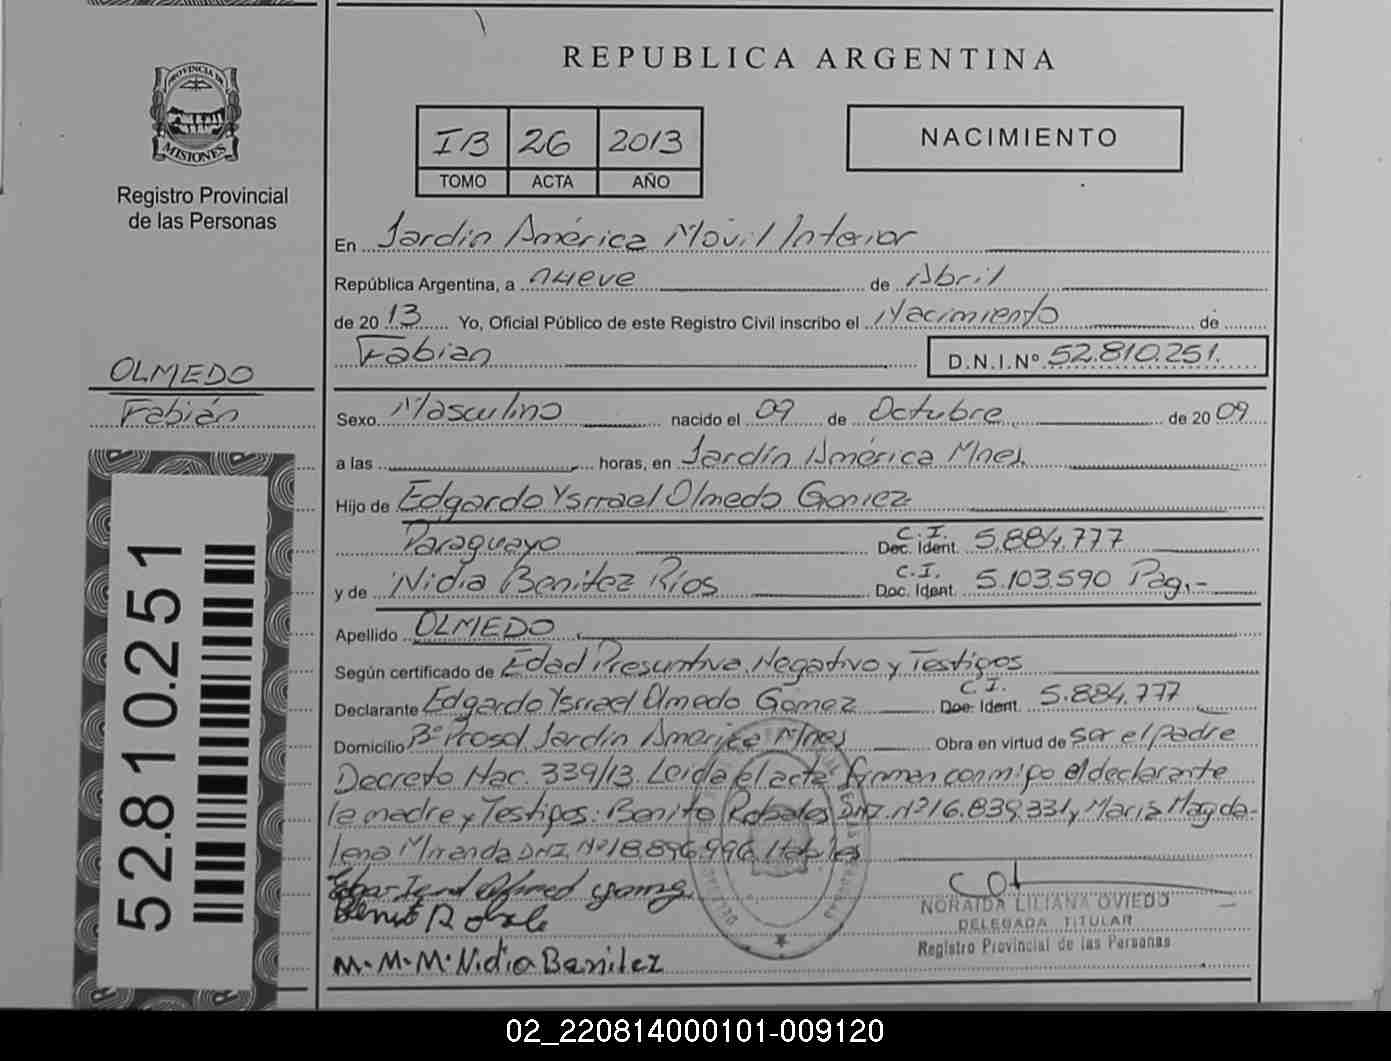 REPUBLICA ARGENTINA
PROVINCIA DE
MISIONES
Registro Provincial
de las Personas
IB 26 2013
TOMO ACTA AÑO
NACIMIENTO
En Jardín América Movil Interior
República Argentina, a nueve de Abril
de 2013 Yo, Oficial Público de este Registro Civil inscribo el Nacimiento de
Fabian D.N.I.Nº 52.810.251.
OLMEDO
Fabián
Sexo Masculino nacido el 09 de Octubre de 2009
a las horas, en Jardín América Mnes.
Hijo de Edgardo Ysrrael Olmedo Gomez
Paraguayo C.I. Doc. Ident. 5.884.777
y de Nidia Benitez Ríos C.I. Doc. Ident. 5.103.590 Pag,-
Apellido OLMEDO
Según certificado de Edad Presuntiva, Negativo y Testigos
Declarante Edgardo Ysrrael Olmedo Gomez C.I. Doc. Ident. 5.884.777
Domicilio Bº Prosol Jardín América Mnes Obra en virtud de ser el padre
Decreto Nac. 339/13. Leida el acta firman conmigo el declarante
la madre y Testigos: Benito Robales DNI. Nº 16.839.331 y María Magda-
lena Miranda DNI. Nº 18.896.996
NORAIDA LILIANA OVIEDO
DELEGADA TITULAR
Registro Provincial de las Personas
M.M.M. Nidia Benitez
52.810.251
02_220814000101-009120